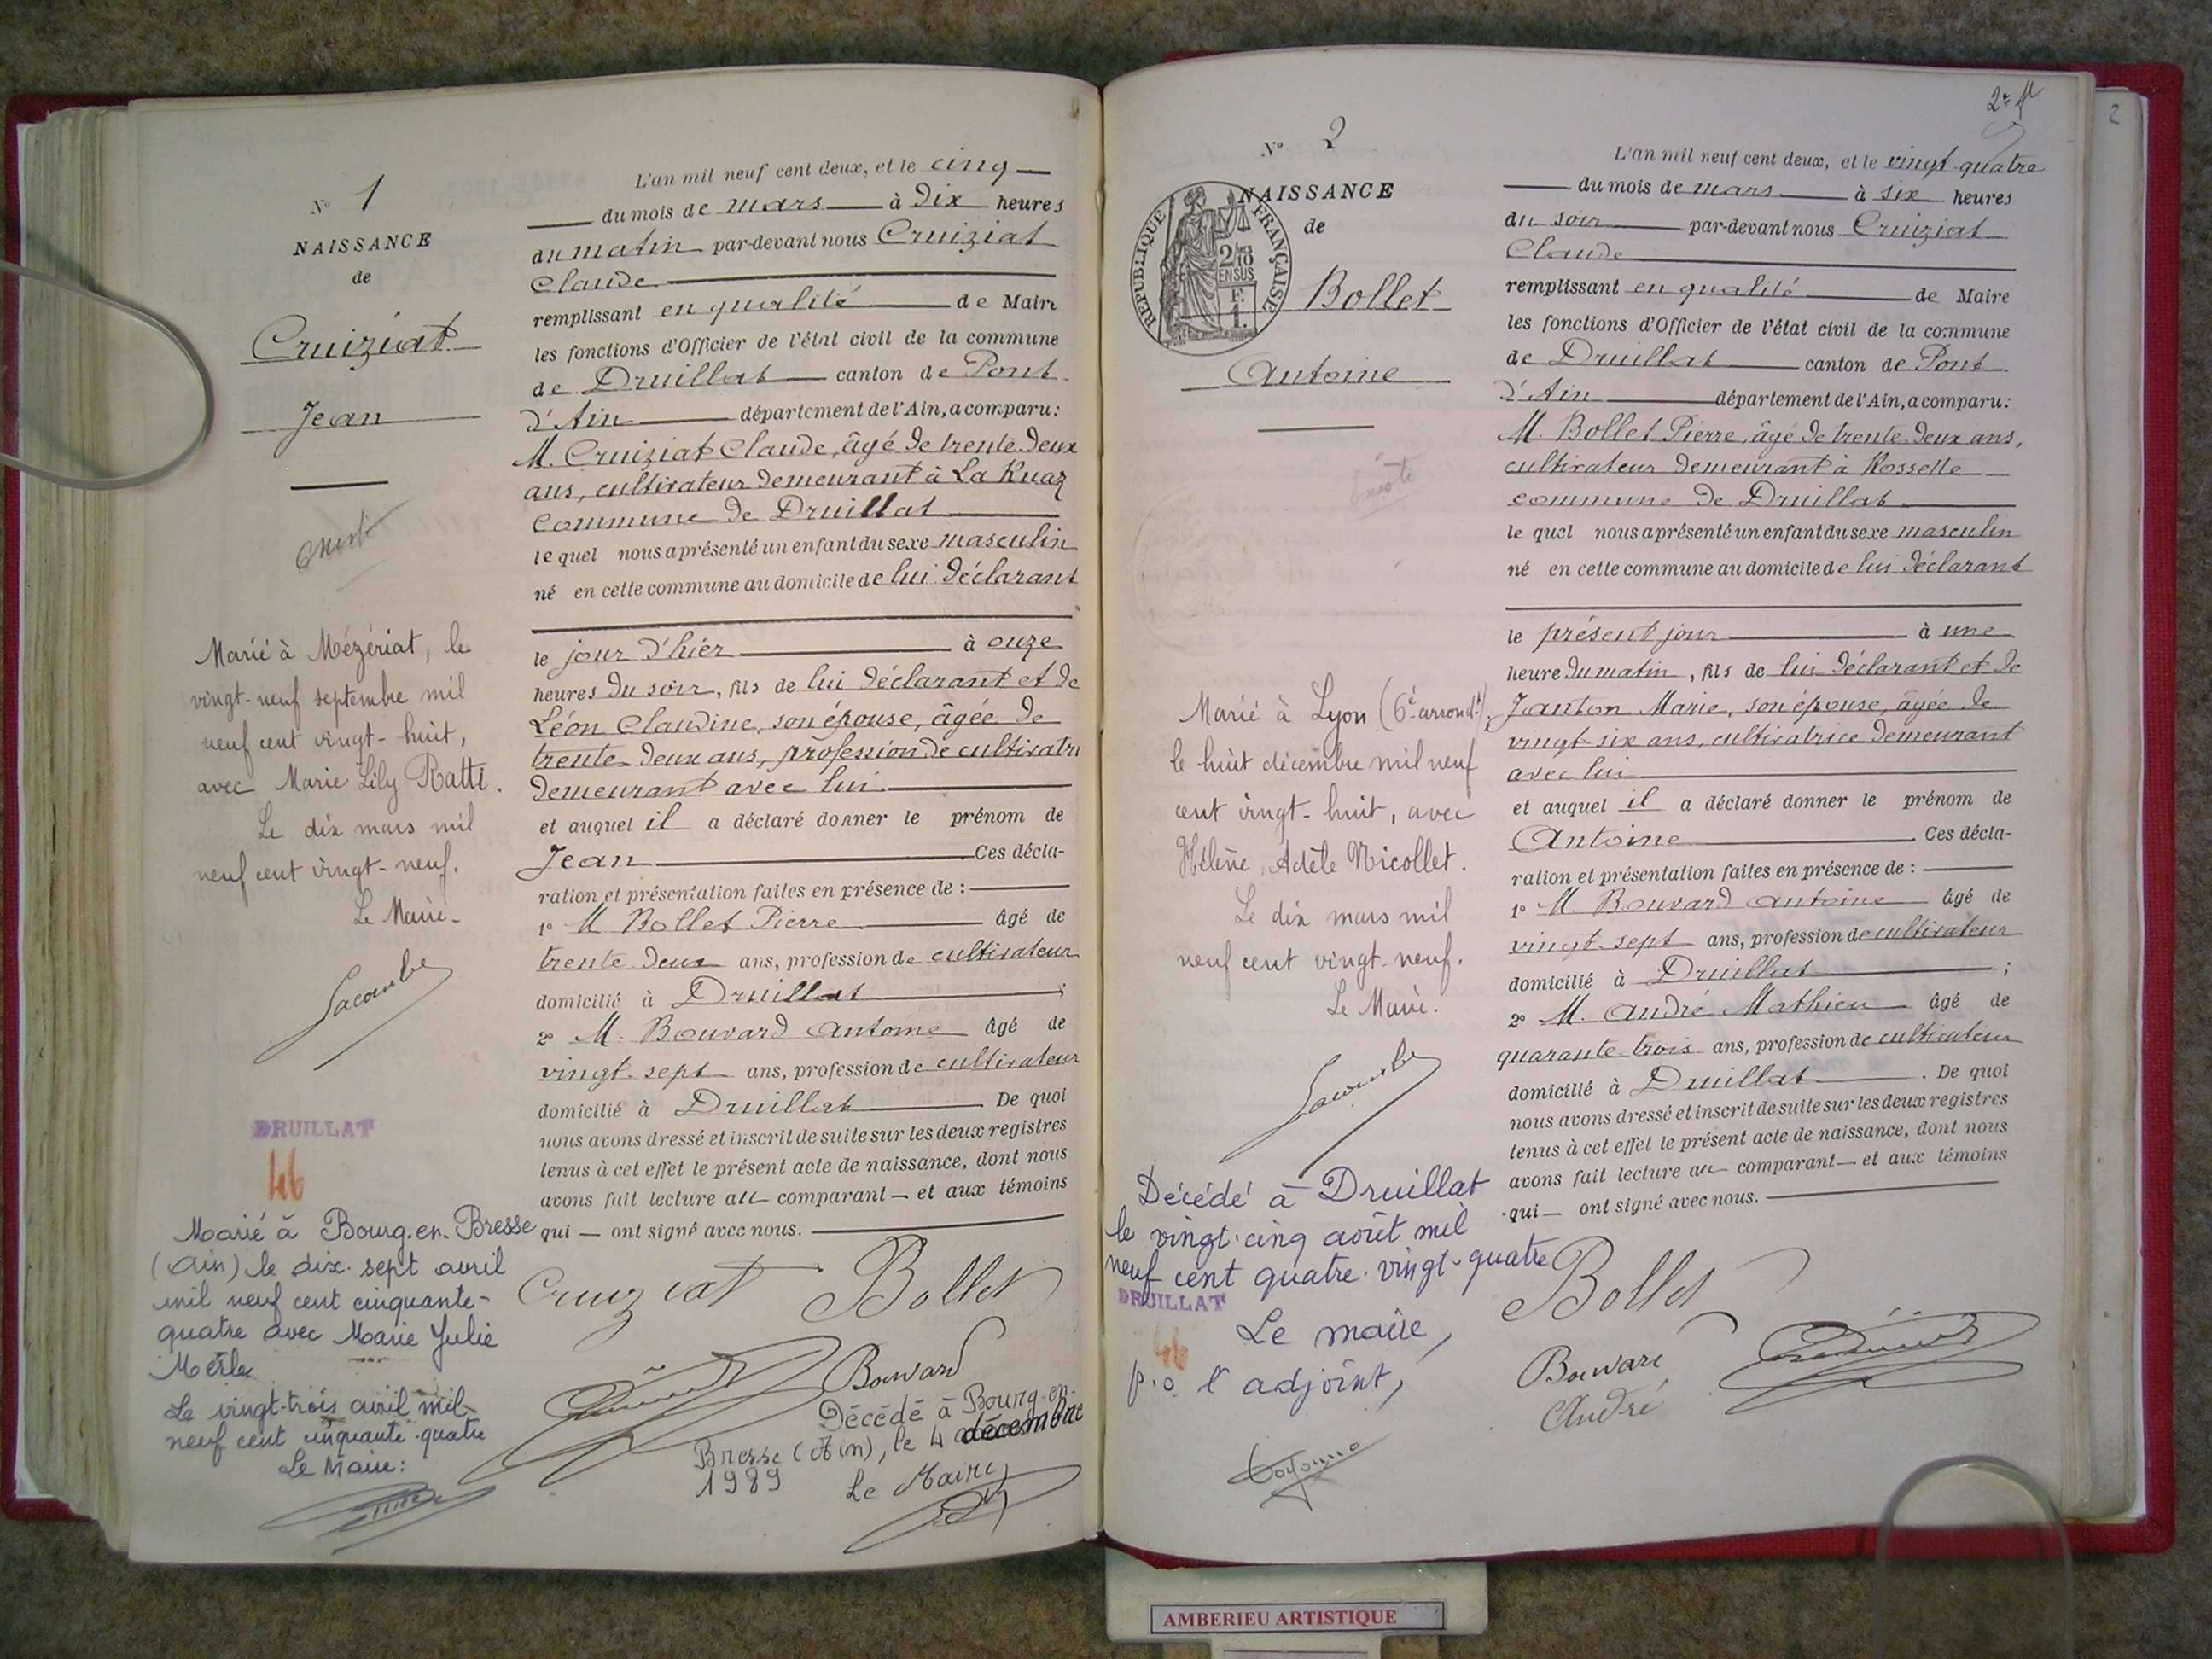 N° 1
NAISSANCE
de
Cruiziat
Jean
Marié à Mézériat, le
vingt-neuf septembre mil
neuf cent vingt-huit,
avec Marie Lily Ratti.
Le dix mars mil
neuf cent vingt-neuf.
Le Maire.
Lacombe
DRUILLAT
46
Marié à Bourg-en-Bresse
(Ain) le dix-sept avril
mil neuf cent cinquante-
quatre avec Marie Julie
Merle
Le vingt-trois avril mil
neuf cent cinquante-quatre
Le Maire:
L'an mil neuf cent deux, et le cinq
du mois de mars à Dix heures
du matin par-devant nous Cruiziat
Claude
remplissant en qualité de Maire
les fonctions d'Officier de l'état civil de la commune
de Druillat canton de Pont
d'Ain département de l'Ain, a comparu:
M. Cruiziat Claude, âgé de trente-deux
ans, cultivateur demeurant à La Ruaz
Commune de Druillat
le quel nous a présenté un enfant du sexe masculin
né en cette commune au domicile de lui déclarant
le jour d'hier à onze
heures du soir, fils de lui déclarant et de
Léon Claudine, son épouse, âgée de
trente-deux ans, profession de cultivatri
demeurant avec lui.
et auquel il a déclaré donner le prénom de
Jean Ces décla-
ration et présentation faites en présence de :
1° M Bollet Pierre âgé de
trente deux ans, profession de cultivateur
domicilié à Druillat ;
2° M. Bouvard Antoine âgé de
vingt-sept ans, profession de cultivateur
domicilié à Druillat De quoi
nous avons dressé et inscrit de suite sur les deux registres
tenus à cet effet le présent acte de naissance, dont nous
avons fait lecture au comparant — et aux témoins
qui — ont signé avec nous.
Cruiziat Bollet
Bouvard
Décédé à Bourg-en-
Bresse (Ain), le 4 décembre
1989 Le Maire,
2
N° 2
NAISSANCE
de
REPUBLIQUE FRANÇAISE
2/10 EN SUS
F. 1.
Bollet
Antoine
Marié à Lyon (6è arrondt),
le huit décembre mil neuf
cent vingt-huit, avec
Hélène, Adèle Nicollet.
Le dix mars mil
neuf cent vingt-neuf.
Le Maire.
Lacombe
Décédé à Druillat
le vingt-cinq août mil
neuf cent quatre-vingt-quatre
DRUILLAT
46
Le maire,
p.o l'adjoint,
L'an mil neuf cent deux, et le vingt-quatre
du mois de mars à six heures
du soir par-devant nous Cruiziat
Claude
remplissant en qualité de Maire
les fonctions d'Officier de l'état civil de la commune
de Druillat canton de Pont
d'Ain département de l'Ain, a comparu:
M. Bollet Pierre, âgé de trente-deux ans,
cultivateur demeurant à Rossette
commune de Druillat
le quel nous a présenté un enfant du sexe masculin
né en cette commune au domicile de lui déclarant
le présent jour à une
heure du matin, fils de lui déclarant et de
Janton Marie, son épouse, âgée de
vingt-six ans, cultivatrice demeurant
avec lui
et auquel il a déclaré donner le prénom de
Antoine Ces décla-
ration et présentation faites en présence de :
1° M. Bouvard Antoine âgé de
vingt-sept ans, profession de cultivateur
domicilié à Druillat ;
2° M. André Mathieu âgé de
quarante-trois ans, profession de cultivateur
domicilié à Druillat. De quoi
nous avons dressé et inscrit de suite sur les deux registres
tenus à cet effet le présent acte de naissance, dont nous
avons fait lecture au comparant — et aux témoins
qui — ont signé avec nous.
Bollet
Bouvard
André
AMBERIEU ARTISTIQUE